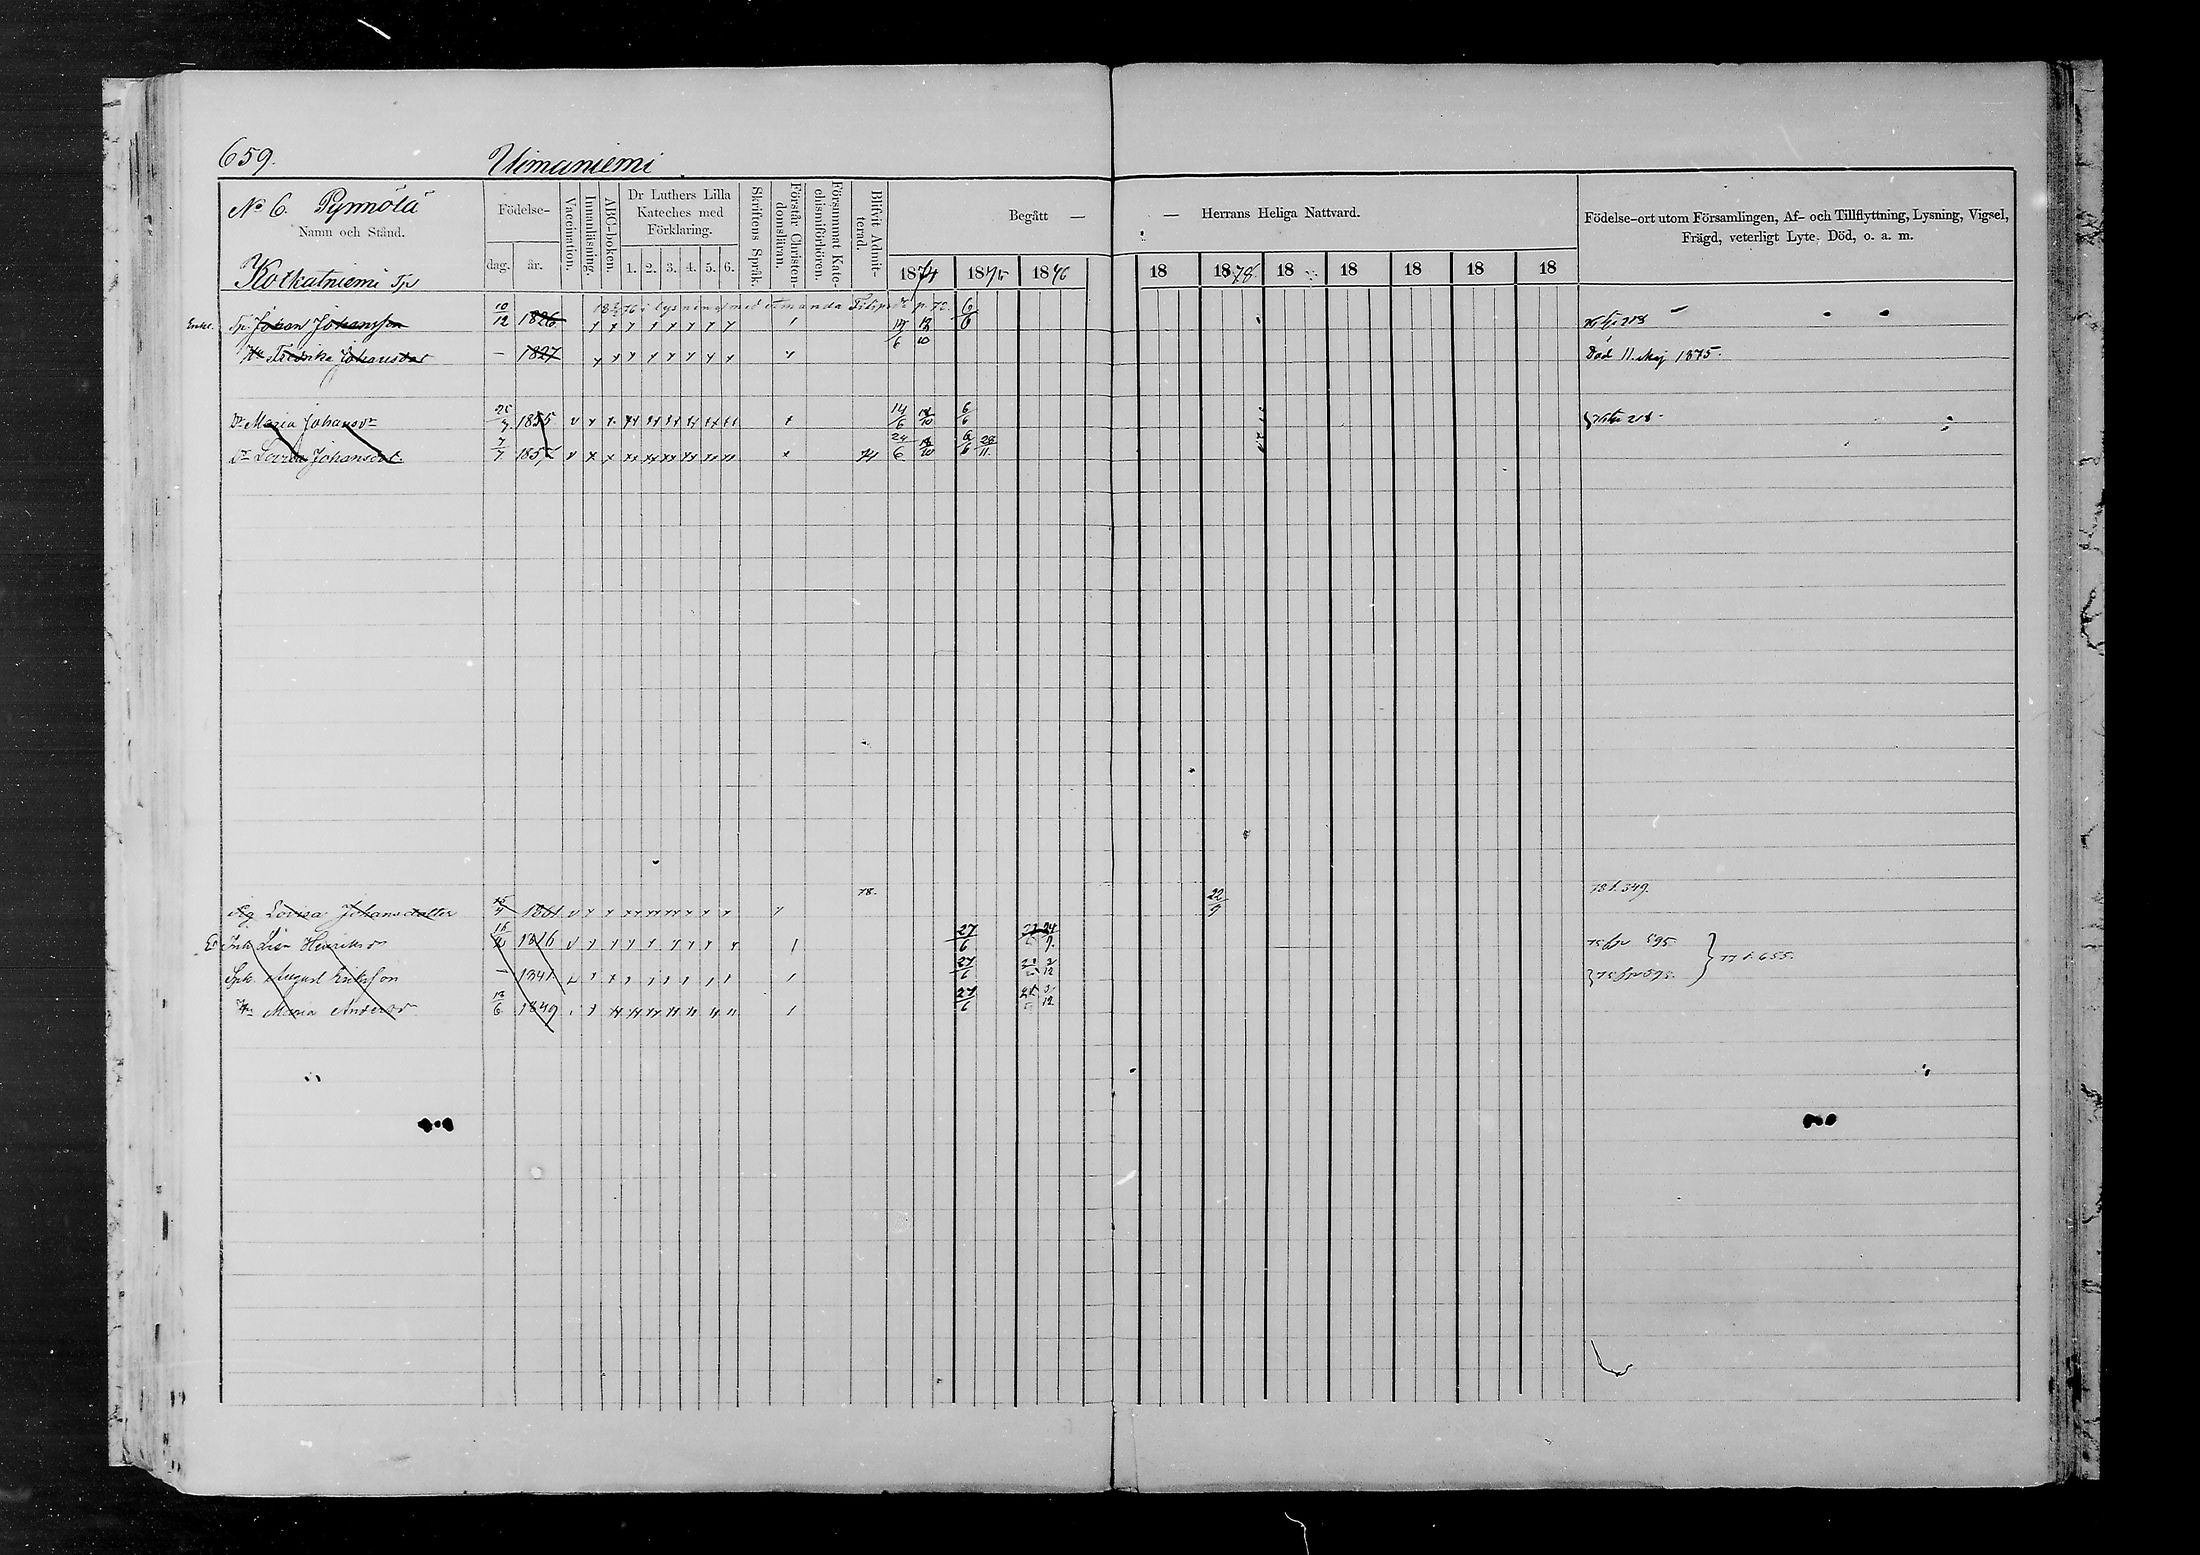 659. Uimaniemi
No 6. Pynnölä
Namn och Stånd.
Kotkatniemi Tp
Födelse-
dag. år.
Vaccination.
Innanläsning.
ABC-boken.
Dr Luthers Lilla
Kateches med
Förklaring.
1. 2. 3. 4. 5. 6.
Skriftens Språk.
Förstår Christen-
domsläran.
Försummat Kate-
chismiförhören.
Blifvit Admit-
terad.
Begått — — Herrans Heliga Nattvard.
1874 1875 1876 18 1878 18 18 18 18 18
Födelse-ort utom Församlingen, Af- och Tillflyttning, Lysning, Vigsel,
Frägd, veterligt Lyte, Död, o. a. m.
i lysning med Amanda
Enkl. Tp. Johan Johansson 10/12 1826
Hu Fredrika Johansdotr — 1827 Död 11 Maj 1875.
Dr Maria Johansdr 25/7 1855 14/6 6/6
Dr Lovisa Johansdot. 7/7 1857 74 24/6 6/6 28/11
78. 22/9 78 f. 349.
Pig Lovisa Johansdotter 1861
Lisa Henriksdr 1816 27/6 595
August Eriksson — 1841 27/6 77 f. 655.
Hu Maria Andersdr 13/6 1849 27/6